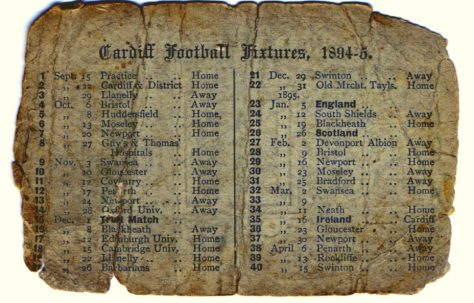 Cardiff Football Fixtures, 1894-5.
1 Sept. 15 Practice .. .. Home
2 ,, 22 Cardiff & District Home
3 ,, 29 Llanelly .. .. Away
4 Oct. 6 Bristol .. .. Away
5 ,, 8 Huddersfield, Home
6 ,, 13 Moseley .. .. Home
,, 20 Newport .. .. Home
8 ,, 27 Guy's & Thomas'
Hospitals .. Home
9 Nov. 3 Swansea .. Away
10 ,, 10 Gloucester .. Away
11 ,, 12 Coventry .. Home
12 ,, 17 Penarth .. Home
13 ,, 24 Newport .. Away
14 ,, Oxford Univ. .. Away
Dec. Trial Match ..
,, 8 Blackheath .. Away
17 ,, 12 Edinburgh Univ. Home
18 ,, 15 Cambridge Univ. Home
,, Llanelly .. Home
,, 26 Barbarians .. Home
21 Dec. 29 Swinton .. .. Away
22 ,, 31 Old Mrcht. Tayls. Home
1895.
23 Jan. 5 England
24 ,, 12 South Shields .. Away
25 ,, 19 Blackheath .. Home
26 ,, 26 Scotland
27 Feb. 2 Devonport Albion Away
28 ,, 9 Bristol .. .. Home
29 ,, 16 Newport .. .. Home
30 ,, 23 Moseley .. .. Away
31 ,, 25 Bradford .. .. Away
32 Mar. 2 Swansea .. .. Home
33 ,, 9
34 ,, 11 Neath .. .. Home
35 ,, 16 Ireland .. Cardiff
36 ,, 23 Gloucester .. Home
37 ,, 30 Newport .. .. Away
38 April 6 Penarth .. .. Away
39 ,, 13 Rockliffe .. Home
40 ,, 15 Swinton .. .. Home